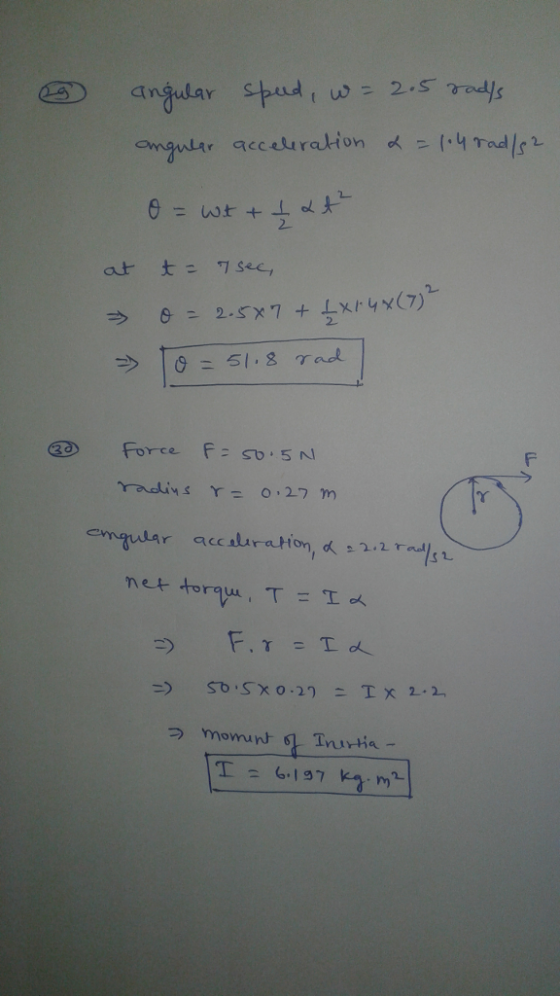 29 angular speed, ω = 2.5 rad/s
angular acceleration α = 1.4 rad/s²
θ = ωt + 1/2 αt²
at t = 7 sec,
⇒ θ = 2.5×7 + 1/2×1.4×(7)²
⇒ θ = 51.8 rad
30 Force F = 50.5 N
F
radius r = 0.27 m
r
angular acceleration, α = 2.2 rad/s²
net torque, T = I α
⇒ F.r = I α
⇒ 50.5×0.27 = I × 2.2
⇒ moment of Inertia -
I = 6.197 kg.m²